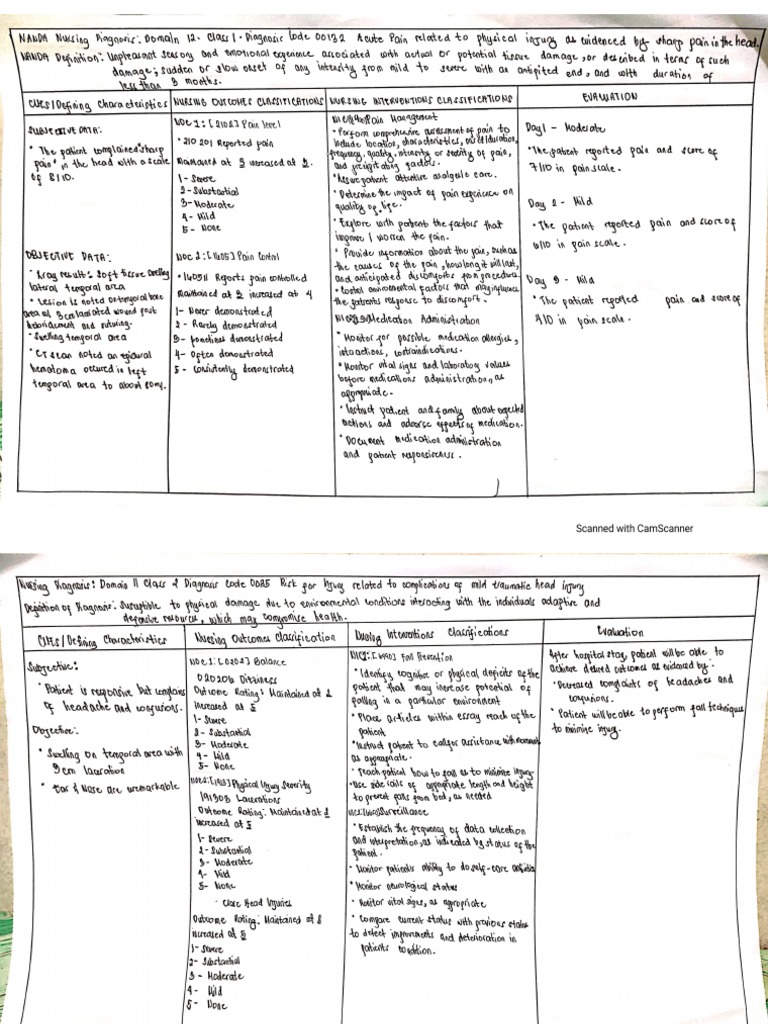 NANDA Nursing Diagnosis: Domain 12. Class 1. Diagnosis Code 00132 Acute Pain related to physical injury as evidenced by sharp pain in the head.
NANDA Definition: Unpleasant sensory and emotional experience associated with actual or potential tissue damage, or described in terms of such
damage; sudden or slow onset of any intensity from mild to severe with an antipited end, and with duration of
less than 3 months.
CUES/Defining Characteristics
SUBJECTIVE DATA:
• The patient complained "sharp
pain" in the head with a scale
of 8/10.
OBJECTIVE DATA:
• Xray result: Soft tissue swelling
lateral temporal area
• Lesion is noted on temporal
area w/ 3cm lacerated wound post
debridement and suturing.
• Swelling temporal area
• CT scan noted an epidural
hematoma occured in left
temporal area to about
NURSING OUTCOMES CLASSIFICATIONS
NOC 1: [2102] Pain level
• 210201 Reported pain
Maintained at 3 increased at
1- Severe
2- Substantial
3- Moderate
4- Mild
5- None
NOC 2: [1605] Pain Control
• 160511 Reports pain controlled
Maintained at increased at 4
1- Never demonstrated
2- Rarely demonstrated
3- Sometimes demonstrated
4- Often demonstrated
5- Consistently demonstrated
NURSING INTERVENTIONS CLASSIFICATIONS
Pain Management
• Perform comprehensive assessment of pain to
include location, characteristics, onset/duration,
frequency, quality, intensity or severity of pain,
and precipitating factors.
• Assure patient attentive analgesic care.
• Determine the impact of pain experience on
quality of life.
• Explore with patient the factors that
improve / worsen the pain.
• Provide information about the pain, such as
the causes of the pain, how long it will last,
and anticipated discomforts from procedures.
• Control enviromental factors that may influence
the patients response to discomfort.
Medication Administration
• Monitor for possible medication allergies,
interactions, contraindications.
• Monitor vital signs and laboratory values
before medications administration, as
appropriate.
• Instruct patient and family about expected
actions and adverse effects of medication.
• Document medication administration
and patient responsiveness.
EVALUATION
Day 1 - Moderate
• The patient reported pain and score of
7/10 in pain scale.
Day 2 - Mild
• The patient reported pain and score of
6/10 in pain scale.
Day 3 - Mild
• The patient reported pain and score of
4/10 in pain scale.
Scanned with CamScanner
Nursing Diagnosis: Domain 11 Class 2 Diagnosis Code 0035 Risk for Injury related to complications of mild traumatic head injury
Definition of Diagnosis: Susceptible to physical damage due to environmental conditions interacting with the individuals adaptive and
defensive resources, which may compromise health.
CUES/Defining Characteristics
Subjective:
• Patient is responsive but complains
of headache and confusions.
Objective:
• Swelling on temporal area with
3cm laceration
• Ear & Nose are unremarkable
Nursing Outcomes Classification
NOC 1: [0202] Balance
020206 Dizziness
Outcome Rating: Maintained at 2
increased at 5
1- Severe
2- Substantial
3- Moderate
4- Mild
5- None
NOC 2: [1913] Physical Injury Severity
191303 Lacerations
Outcome Rating: Maintained at
increased at 5
1- Severe
2- Substantial
3- Moderate
4- Mild
5- None
• Close Head Injuries
Outcome Rating: Maintained at
increased at 5
1- Severe
2- Substantial
3- Moderate
4- Mild
5- None
Nursing Interventions Classifications
Fall Prevention
• Identify cognitive or physical deficits of the
patient that may increase potential of
falling in a particular environment
• Place articles within easy reach of the
patient
Instruct patient to call for assistance with movement,
as appropriate.
• Teach patient how to fall as to minimize injury
• Use side rails of appropriate length and height
to prevent falls from bed, as needed
Surveillance
• Establish the frequency of data collection
and interpretation, as indicated by status of the
patient.
• Monitor patient's ability to do self-care activities
• Monitor neurological status
• Monitor vital signs, as appropriate
• Compare current status with previous status
to detect improvements and deterioration in
patients condition.
Evaluation
After hospital stay, patient will be able to
achieve defined outcomes as evidenced by:
• Decreased complaints of headaches and
confusions.
• Patient will be able to perform fall techniques
to minimize injury.